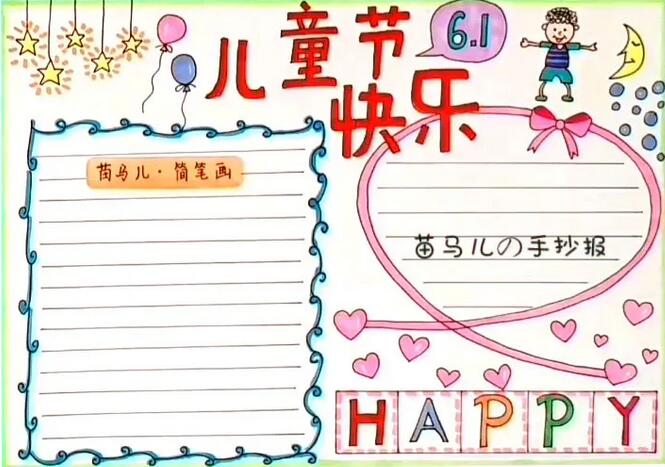 儿童节
6.1
快乐
苗马儿·简笔画
苗马儿の手抄报
HAPPY